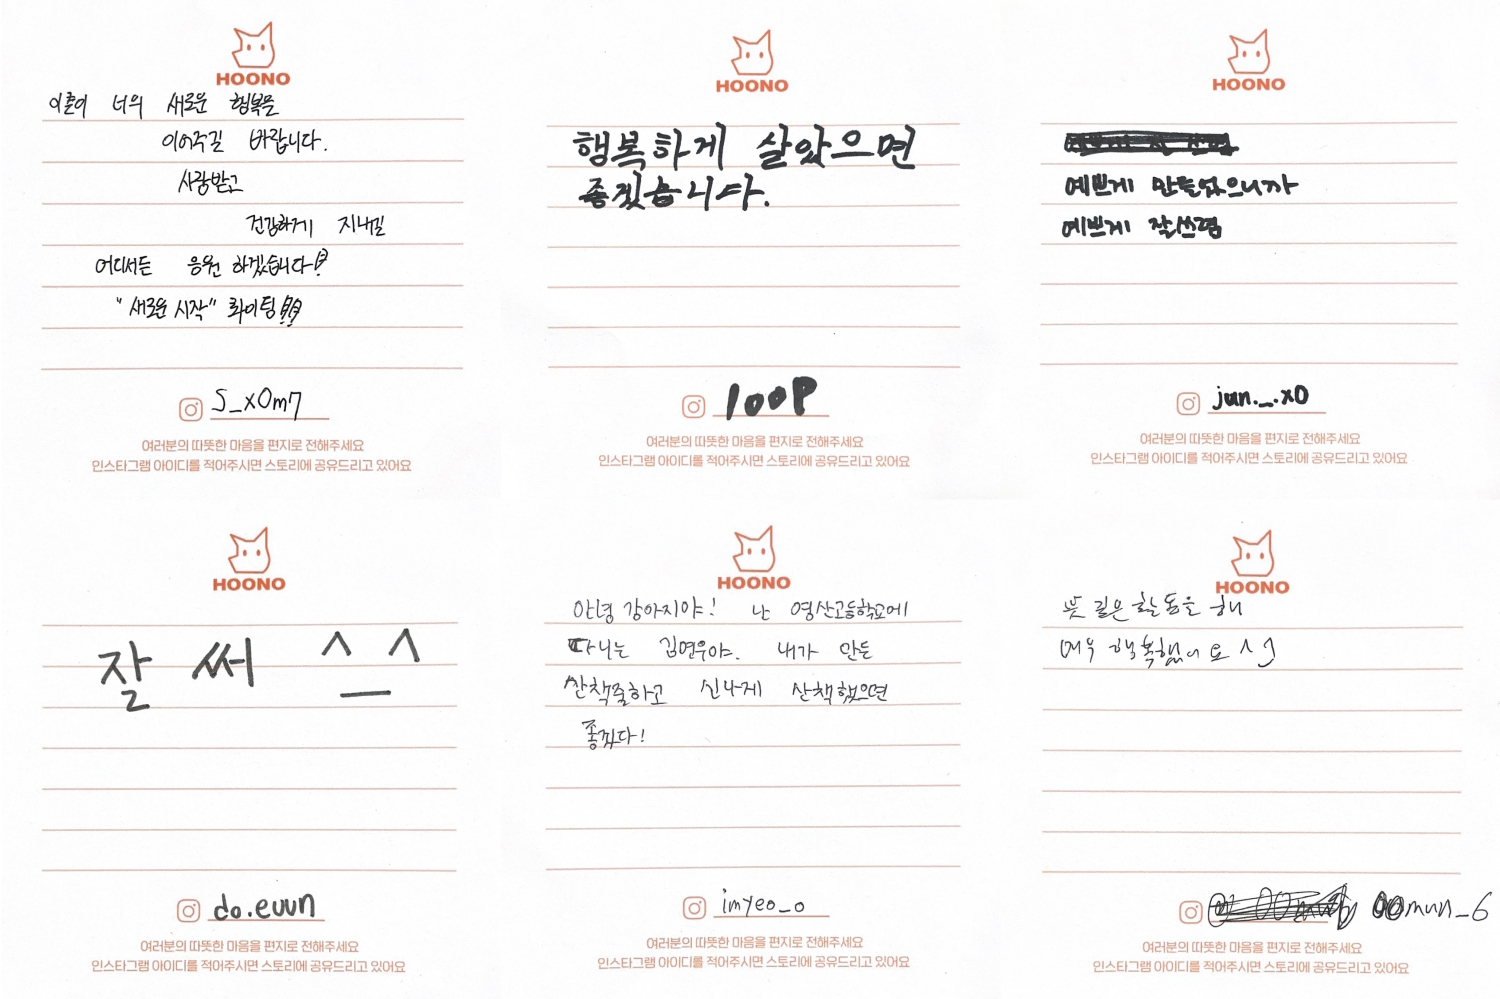 HOONO
이줄이 너의 새로운 행복을
이어주길 바랍니다.
사랑받고
건강하게 지내길
어디서든 응원 하겠습니다!
"새로운 시작" 화이팅!!
S_x0m7
여러분의 따뜻한 마음을 편지로 전해주세요
인스타그램 아이디를 적어주시면 스토리에 공유드리고 있어요
HOONO
행복하게 살았으면
좋겠습니다.
100P
여러분의 따뜻한 마음을 편지로 전해주세요
인스타그램 아이디를 적어주시면 스토리에 공유드리고 있어요
HOONO
예쁘게 만들었으니까
예쁘게 잘쓰렴
jun._.x0
여러분의 따뜻한 마음을 편지로 전해주세요
인스타그램 아이디를 적어주시면 스토리에 공유드리고 있어요
HOONO
잘 써 ^_^
do.euun
여러분의 따뜻한 마음을 편지로 전해주세요
인스타그램 아이디를 적어주시면 스토리에 공유드리고 있어요
HOONO
안녕 강아지야! 난 영산고등학교에
다니는 김연우야. 내가 만든
산책줄하고 신나게 산책했으면
좋겠다!
imyeo_o
여러분의 따뜻한 마음을 편지로 전해주세요
인스타그램 아이디를 적어주시면 스토리에 공유드리고 있어요
HOONO
뜻 깊은 활동을 해
매우 행복했어요 ^^
mun_6
여러분의 따뜻한 마음을 편지로 전해주세요
인스타그램 아이디를 적어주시면 스토리에 공유드리고 있어요